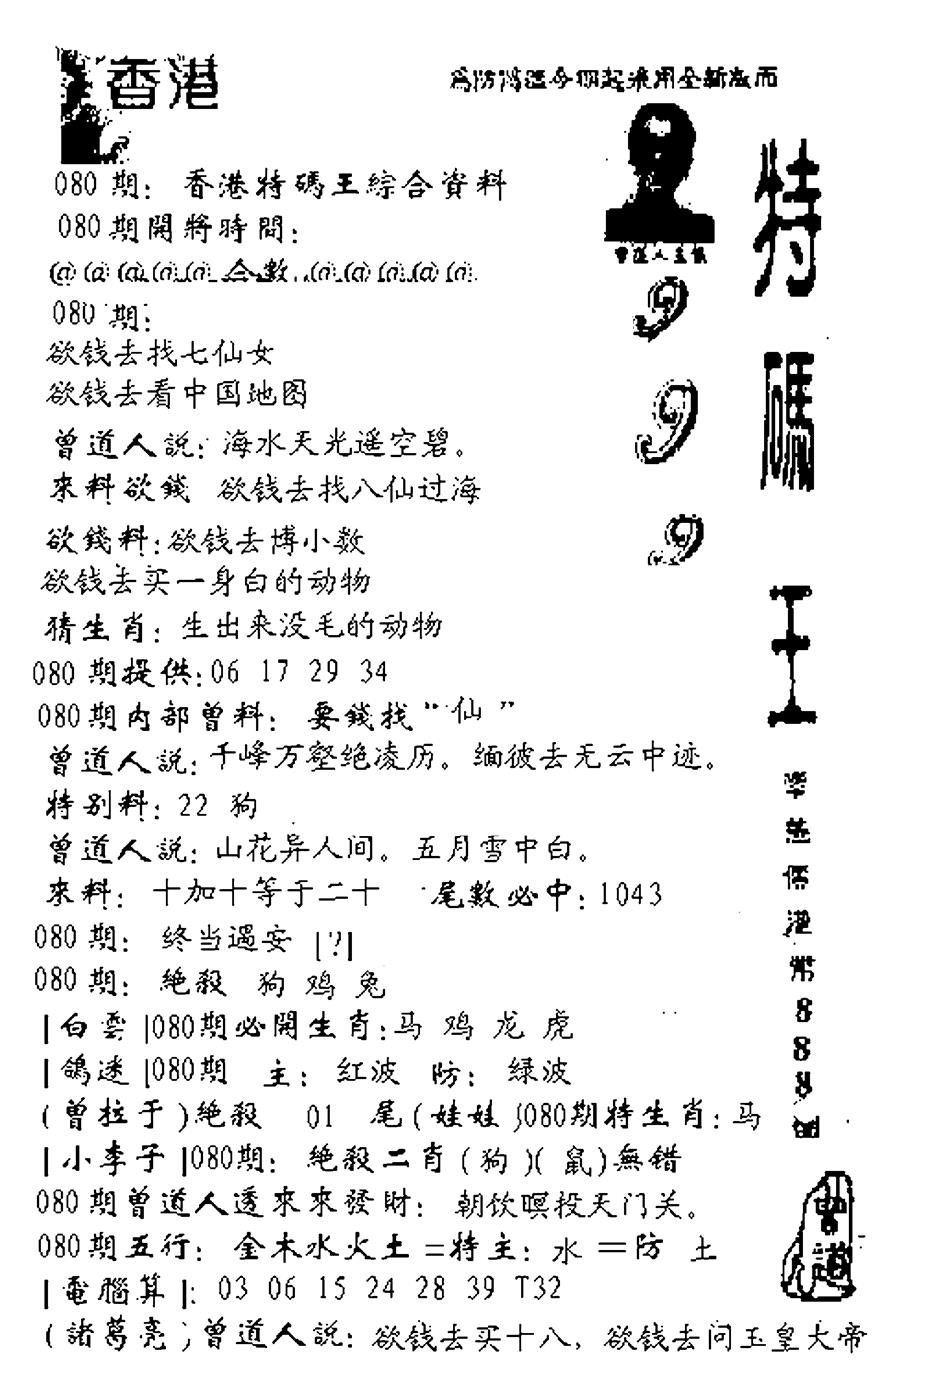 香港
為防偽造今期起采用全新版面
080 期: 香港特碼王綜合資料
080期開將時間:
@@@@@合數..@@@@@.
080 期:
欲钱去找七仙女
欲钱去看中国地图
曾道人説: 海水天光遥空碧。
來料欲錢 欲钱去找八仙过海
欲錢料:欲钱去博小数
欲钱去买一身白的动物
猜生肖: 生出来没毛的动物
080期提供:06 17 29 34
080期内部曾料: 要錢找“仙”
曾道人説:千峰万壑绝凌历。缅彼去无云中迹。
特别料:22 狗
曾道人説:山花异人间。五月雪中白。
來料: 十加十等于二十 尾數必中:1043
080期: 终当遇安 [?]
080期: 絶殺 狗 鸡 兔
|白雲|080期必開生肖:马 鸡 龙 虎
|鴿迷|080期 主: 红波 防: 绿波
(曾拉于)絶殺 01 尾(娃娃)080期特生肖:马
|小李子|080期: 絶殺二肖(狗)(鼠)無错
080期曾道人透來來發財: 朝饮暝投天门关。
080期五行: 金木水火土=特主: 水 =防 土
|電腦算|: 03 06 15 24 28 39 T32
(諸葛亮)曾道人説: 欲钱去买十八, 欲钱去问玉皇大帝
曾道人主供
9
9
9
特碼王
港幣888
曾道